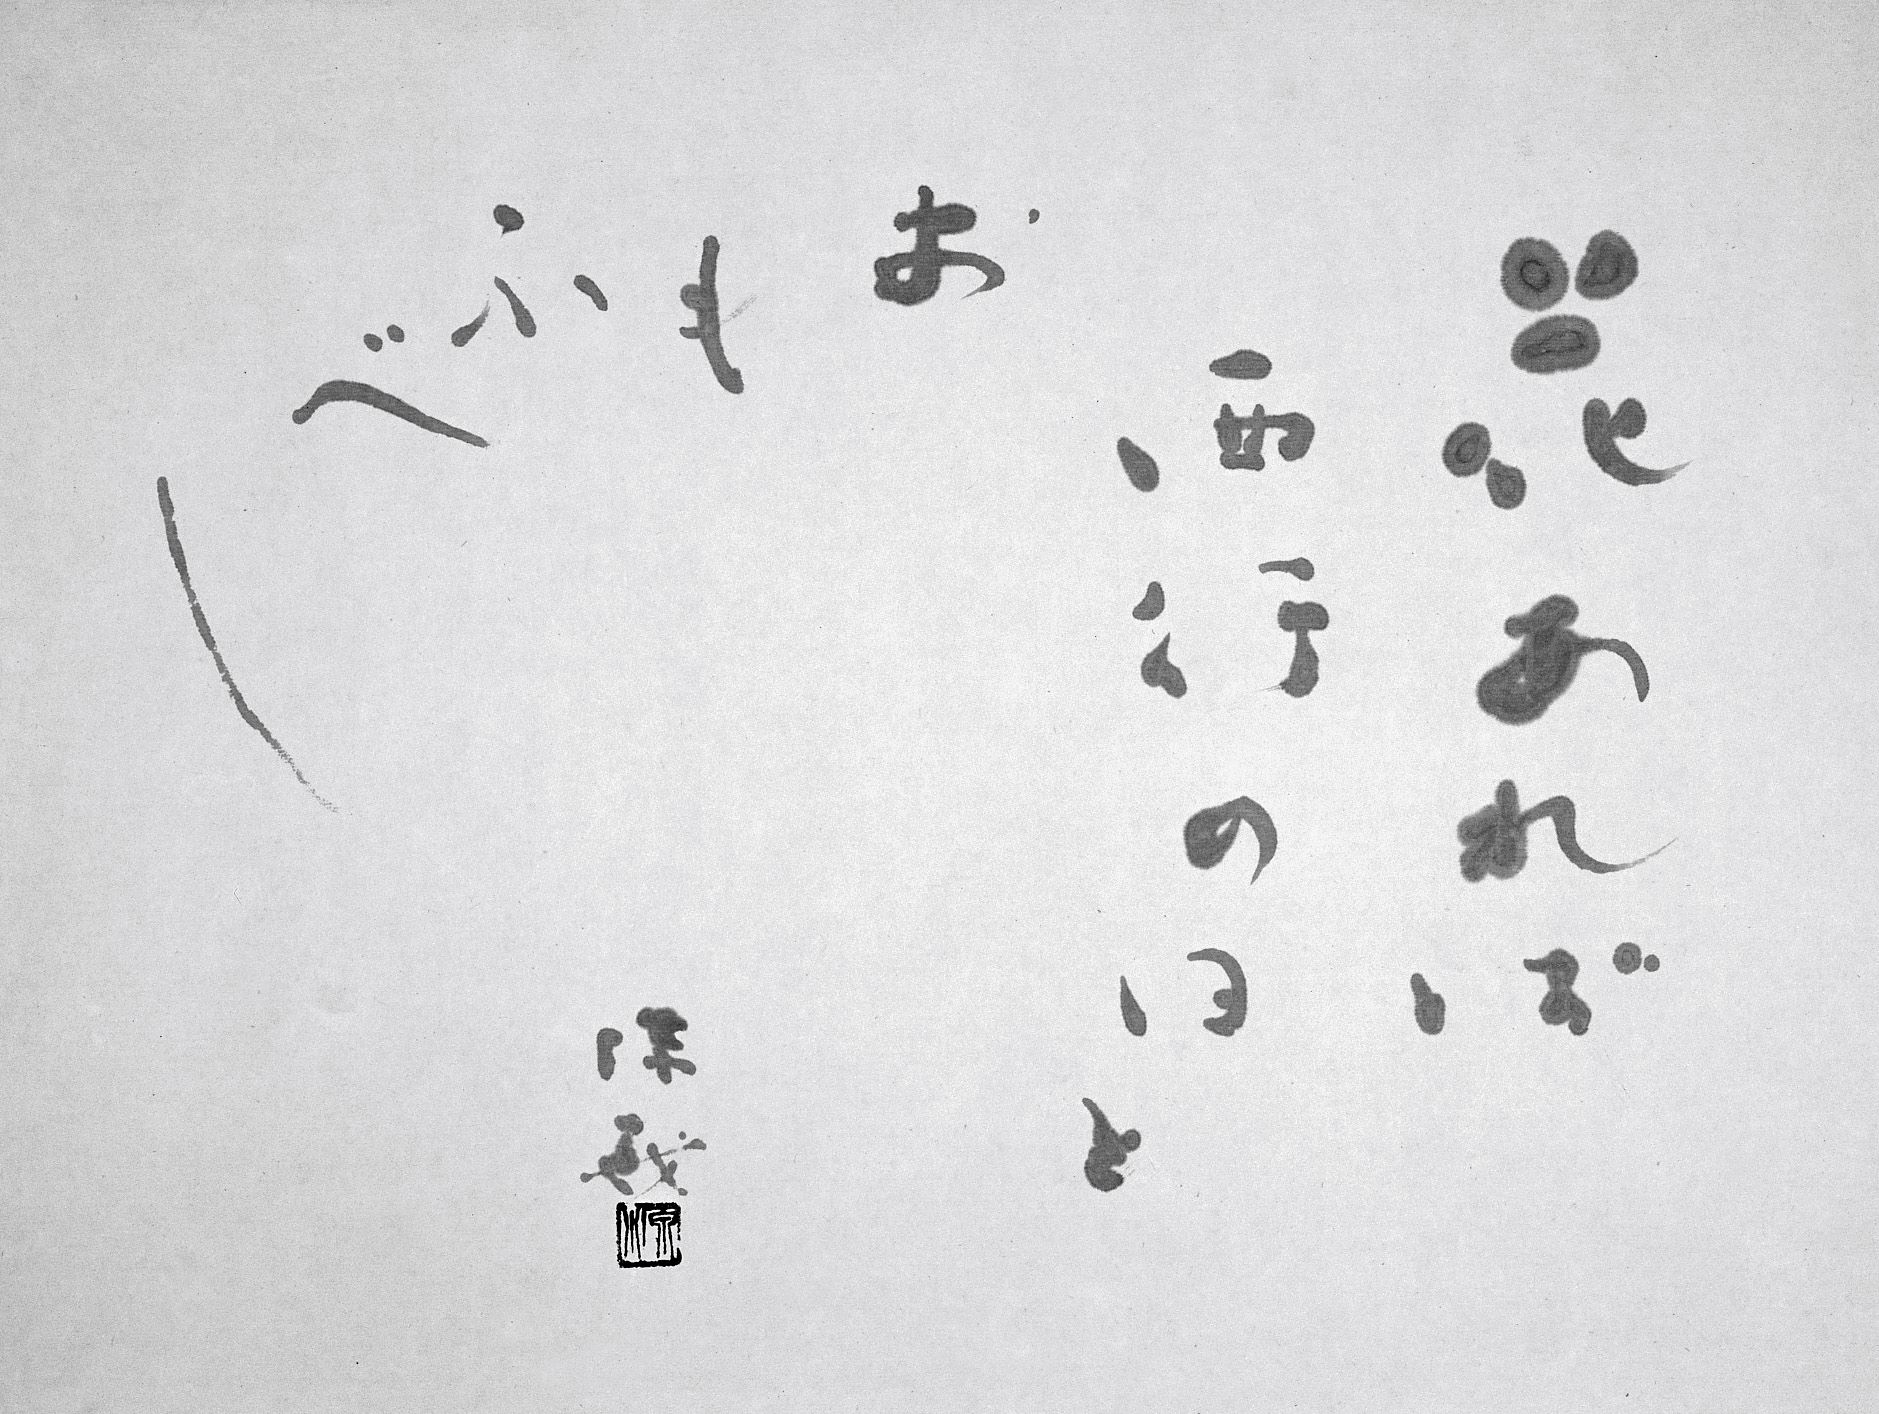 花あれば
西行の日と
おもふべし
源義